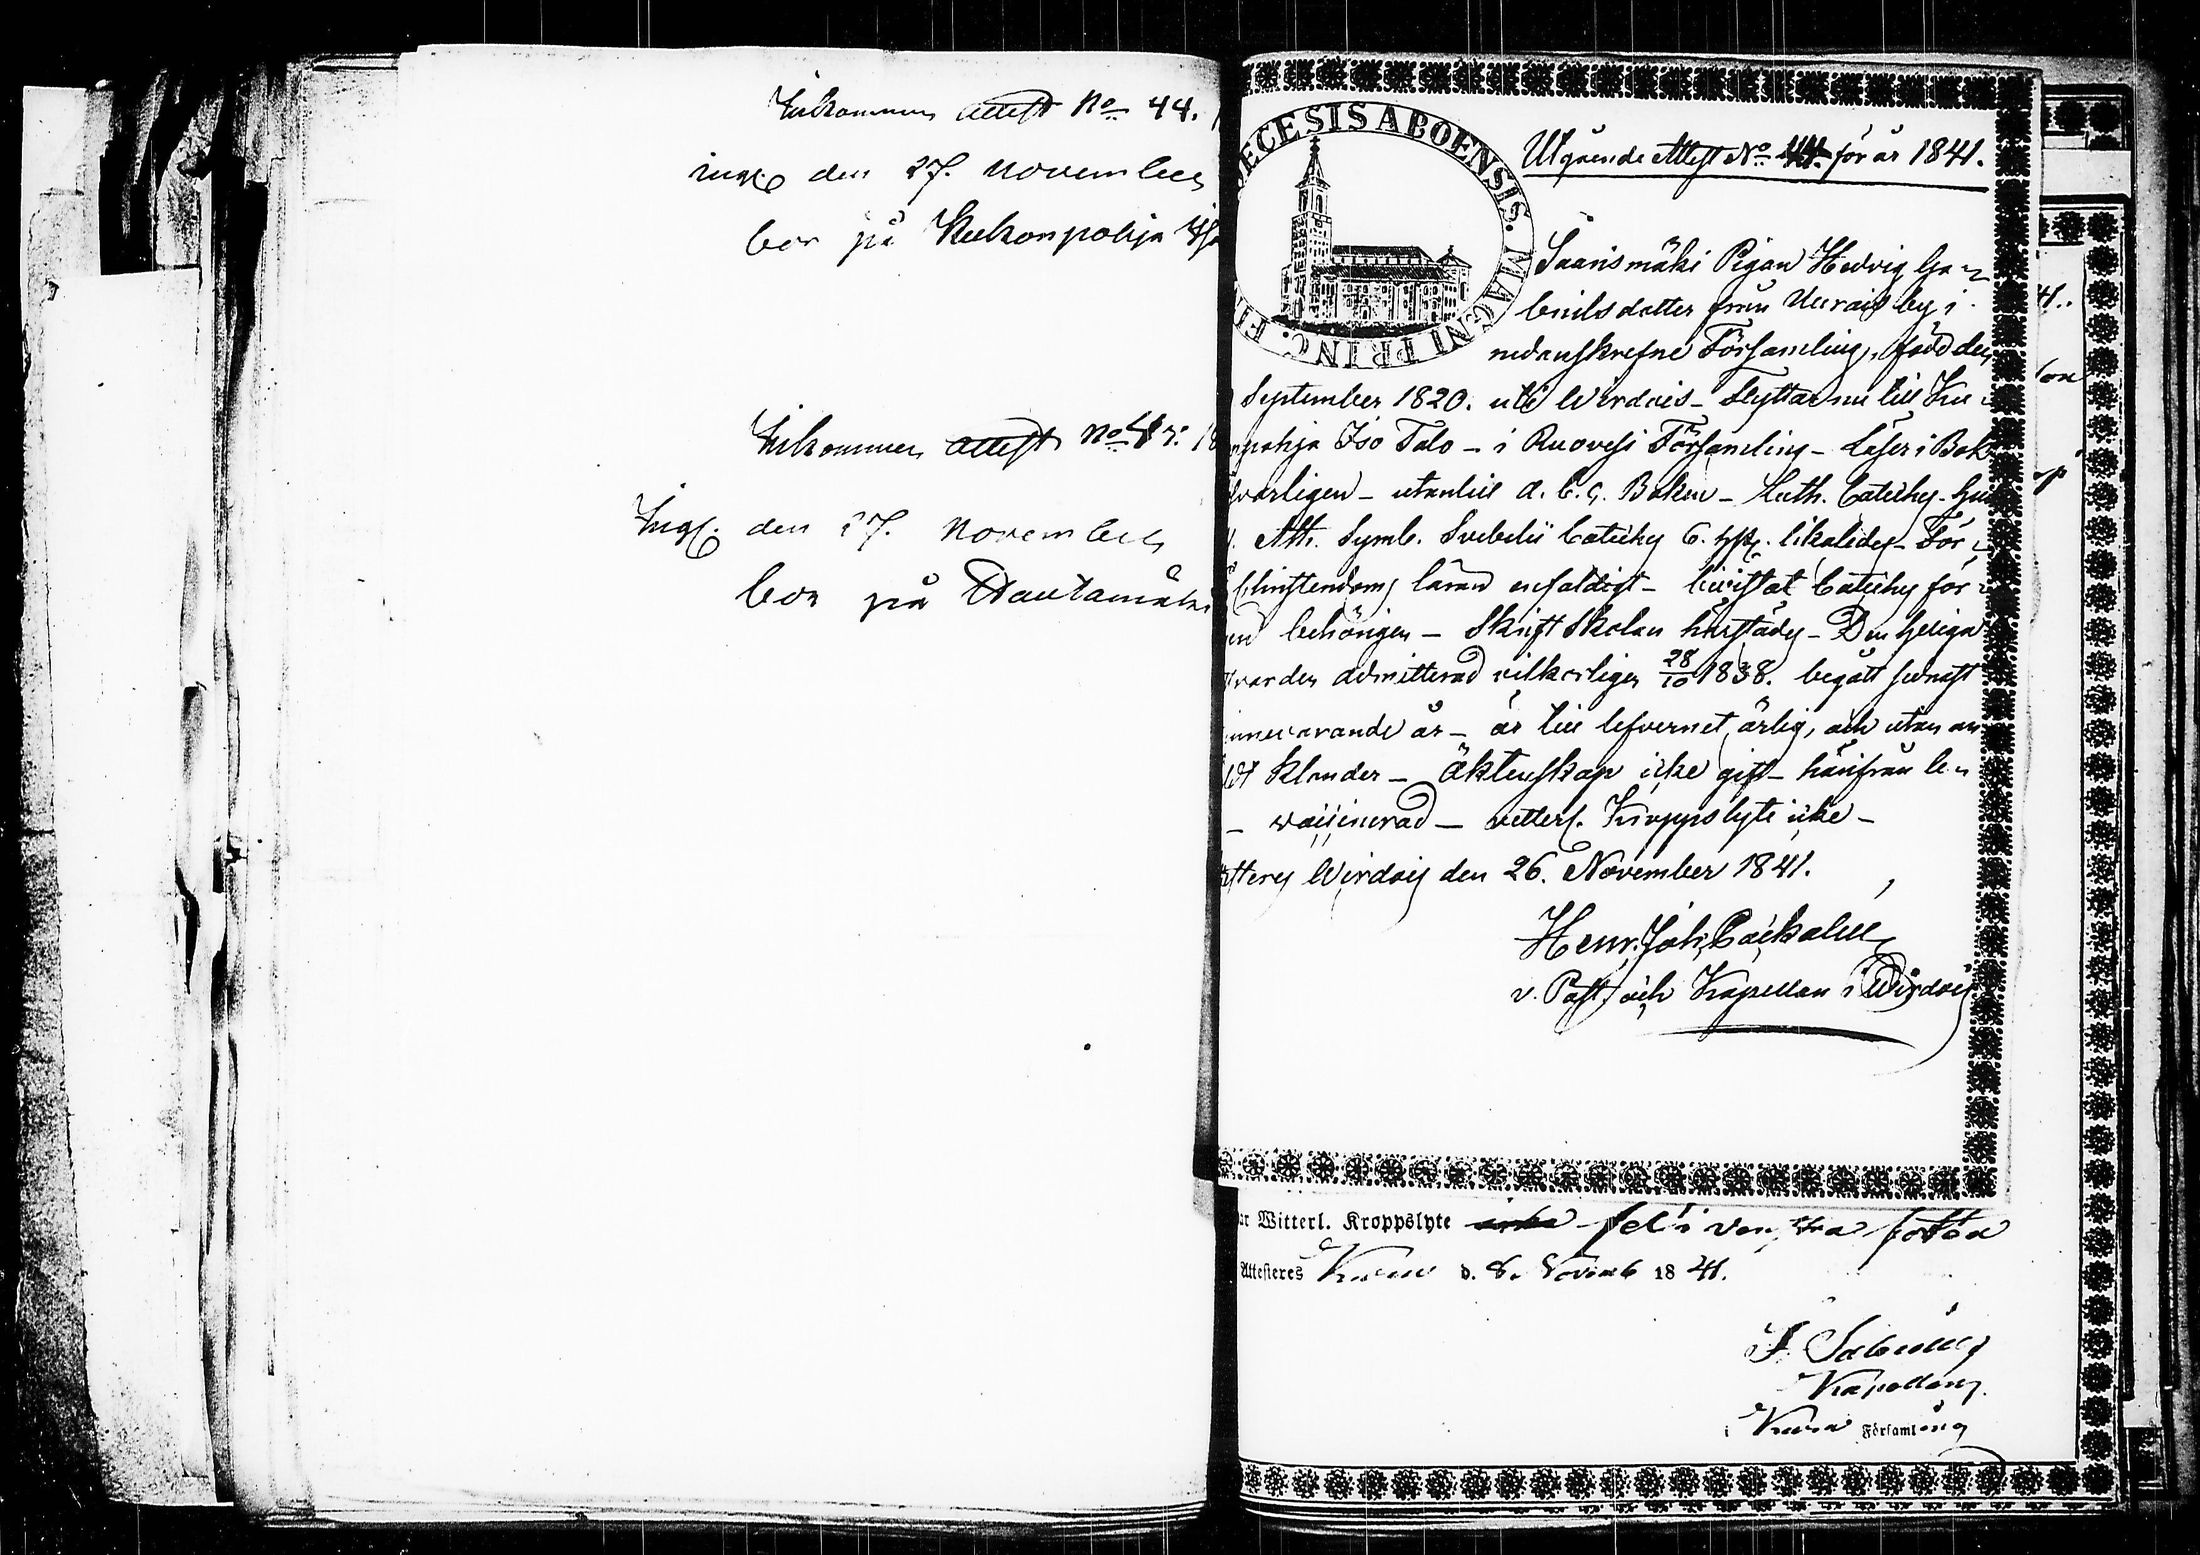 Inkommen attest No 44.
ingf. den 27. November
bor på Kukonpohja
Inkommen attest No 45.
Ingf. den 27. November
bor på Hautamäki
DIOECESIS ABOENSIS. MAGNI PRINC. FI
Utgående Attest No 44. för år 1841.
Saarismäki Pigan Hedvig Ga-
brielsdotter från Uurais by i
nedanskrefne Församling, född den
September 1820. uti Wirdois – Flyttar nu till Ku-
konpohja Iso Talo – i Ruovesi Församling – Läser i Bok
försvarligen – utantill A. B. C. Boken – Luth. Cateches. Hus
t. Ath. Symb. Svebelii Cateches 6. hst. likaledes – För-
står Christendoms läran enfaldigt – bivistat Cateches för-
hören behörigen – Skriftskolan härstädes – Den Heliga
Nattvarden admitterad vilkorligen 28/10 1838. begått senast
innevarande år – är till lefvernet ärlig, och utan an-
klander – Äktenskap icke gift – härifrån le-
– vaccinerad – vetterl. Kroppslyte icke –
Attesteras Wirdois den 26. November 1841.
Henr. Joh.
v. Past. och Kapellan i Wirdois
Witterl. Kroppslyte icke fel i venstra foten
Attesteres Kuru d. 8. Novemb 1841.
Kapellan
i Kuru Församling